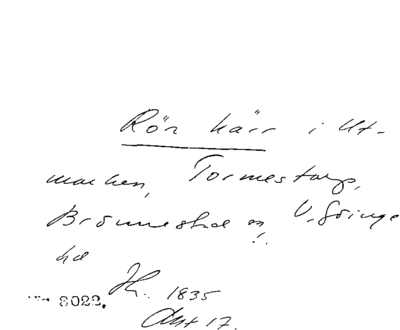 Rör kärr i Ut-
marken, Tormestorp,
Brönnestad sn, V. Göinge
hd
Sk. 1835
8022.
Akt 17.